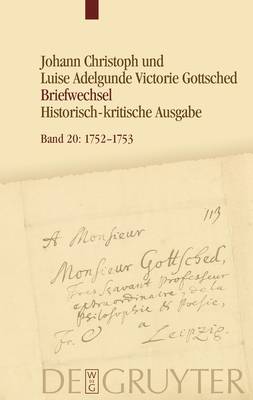 Johann Christoph und
Luise Adelgunde Victorie Gottsched
Briefwechsel
Historisch-kritische Ausgabe
Band 20: 1752–1753
113
A Monsieur
Monsieur Gottsched,
Tres Scavant Professeur
extraordinaire, de la
Philosophie & Poesie,
Fr. à Leipzig.
W
DE
G
DE GRUYTER